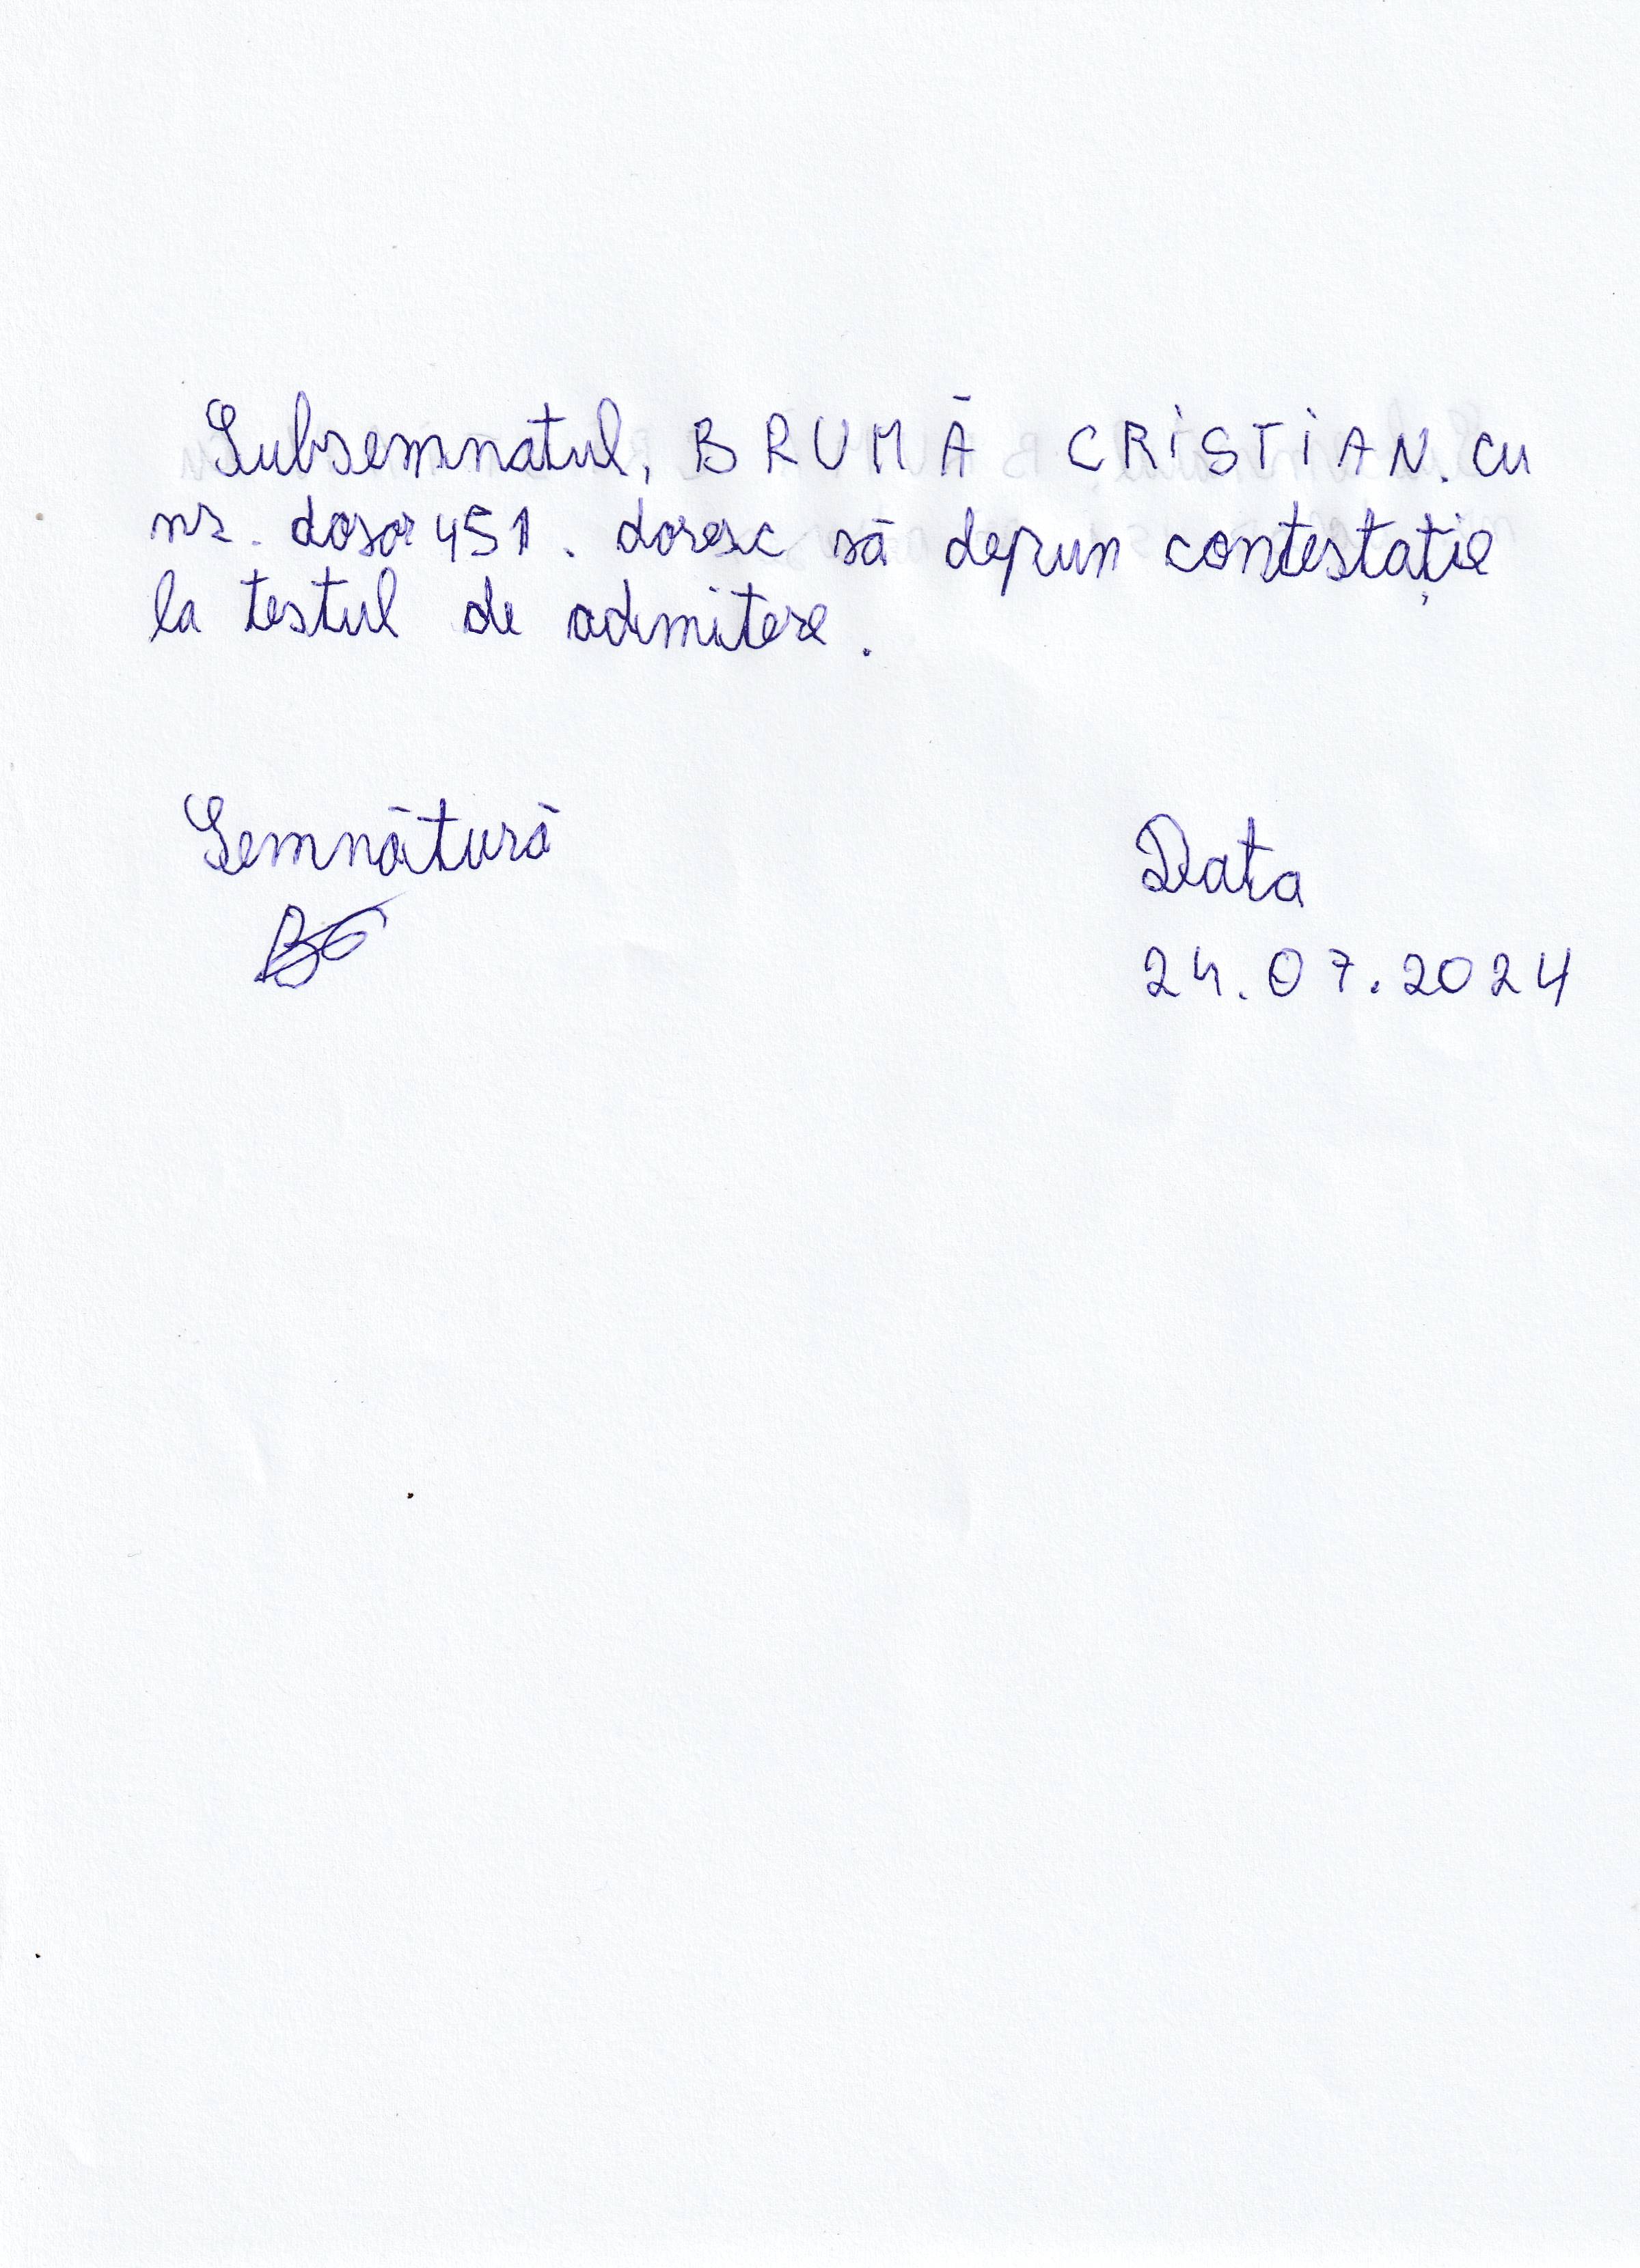 Subsemnatul, BRUMĂ CRISTIAN. cu
nr. dosar 451. doresc să depun contestație
la testul de admitere.
Semnătură
Data
24.07.2024